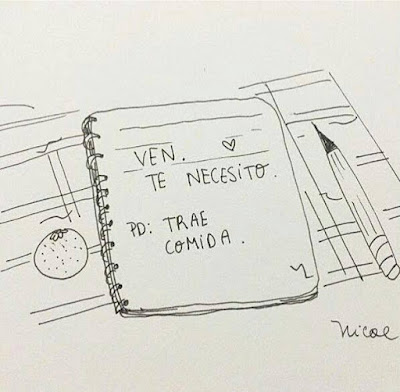 VEN. ♡
TE NECESITO.
PD: TRAE
COMIDA.